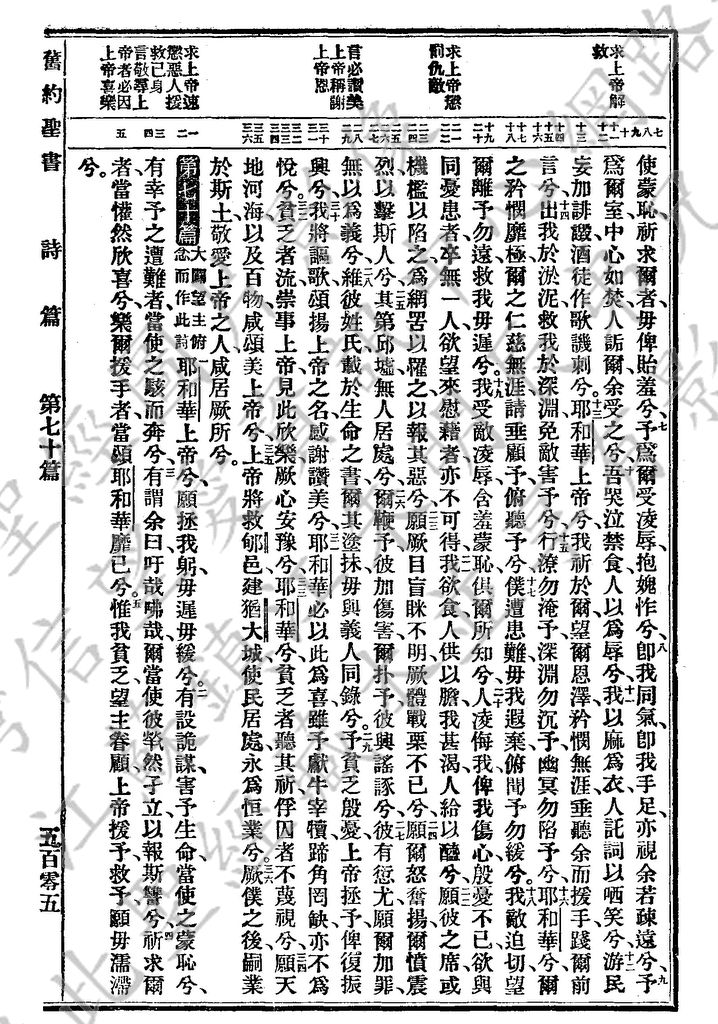 舊約聖書
詩篇
第七十篇
五百零五
求上帝解
救
求上帝懲
罰仇敵
言必讚美
上帝稱謝
上帝恩
求上帝速
懲惡人援
救己身
言敬尋上
帝者必因
上帝喜樂
使蒙恥祈求爾者毋俾貽羞兮予爲爾受凌辱抱媿怍兮卽我同氣卽我手足亦視余若疎遠兮予
爲爾室中心如焚人詬爾余受之兮吾哭泣禁食人以爲辱兮我以麻爲衣人託詞以哂笑兮游民
妄加誹譭酒徒作歌譏刺兮耶和華上帝兮我祈於爾望爾恩澤矜憫無涯垂聽余而援手踐爾前
言兮出我於淤泥救我於深淵免敵害予兮行潦勿淹予深淵勿沉予幽冥勿陷予兮耶和華兮爾
之矜憫靡極爾之仁慈無涯請垂顧予俯聽予兮僕遭患難毋我遐棄俯聞予勿緩兮我敵迫切望
爾離予勿遠救我毋遲兮我受敵凌辱含羞蒙恥俱爾所知兮人凌侮我俾我傷心殷憂不已欲與
同憂患者卒無一人欲望來慰藉者亦不可得我欲食人供以膽我甚渴人給以醯兮願彼之席或
機檻以陷之爲網罟以羅之以報其惡兮願厥目盲眯不明厥體戰栗不已兮願爾怒奮揚爾憤震
烈以擊斯人兮其第邱墟無人居處兮爾鞭予彼加傷害爾扑予彼興謠諑兮彼有愆尤願爾加罪
無以爲義兮維彼姓氏載於生命之書爾其塗抹毋與義人同錄兮予貧乏殷憂上帝拯予俾復振
興兮我將謳歌頌揚上帝之名感謝讚美兮耶和華必以此爲喜雖予獻牛宰犢蹄角罔缺亦不爲
悅兮貧乏者流崇事上帝見此欣樂厥心安豫兮耶和華兮貧乏者聽其祈俘囚者不蔑視兮願天
地河海以及百物咸頌美上帝兮上帝將救郇邑建猶大城使民居處永爲恒業兮厥僕之後嗣業
於斯土敬愛上帝之人咸居厥所兮。
第七十篇 大闢望主俯念而作此詩 耶和華上帝兮願拯我躬毋遲毋緩兮有設詭謀害予生命當使之蒙恥兮
有幸予之遭難者當使之駭而奔兮有謂余曰吁哉咈哉爾當使彼煢然孑立以報斯讐兮祈求爾
者當懽然欣喜兮樂爾援手者當頌耶和華靡已兮惟我貧乏望主眷顧上帝援予救予願毋濡滯
兮。